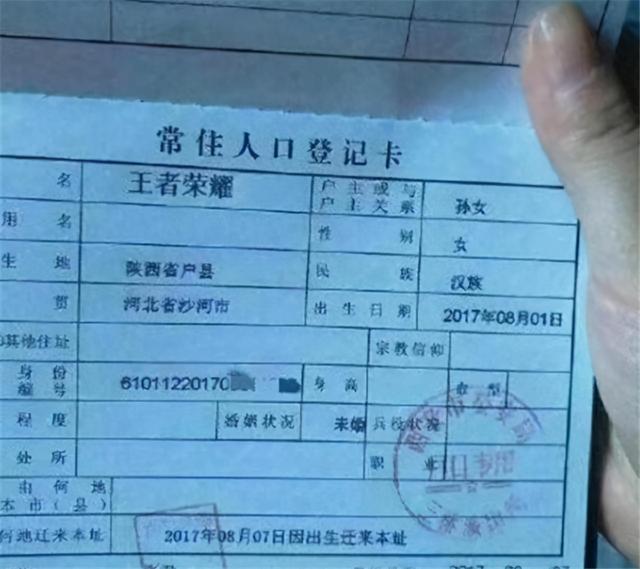 常住人口登记卡
名 王者荣耀 户主或与户主关系 孙女
用名 性别 女
生地 陕西省户县 民族 汉族
贯 河北省沙河市 出生日期 2017年08月01日
其他住址 宗教信仰
身份 编号 61011220170 身高 血型
程度 婚姻状况 未婚 兵役状况
处所 职业
由何地
本市(县)
何地迁来本址 2017年08月07日因出生迁来本址